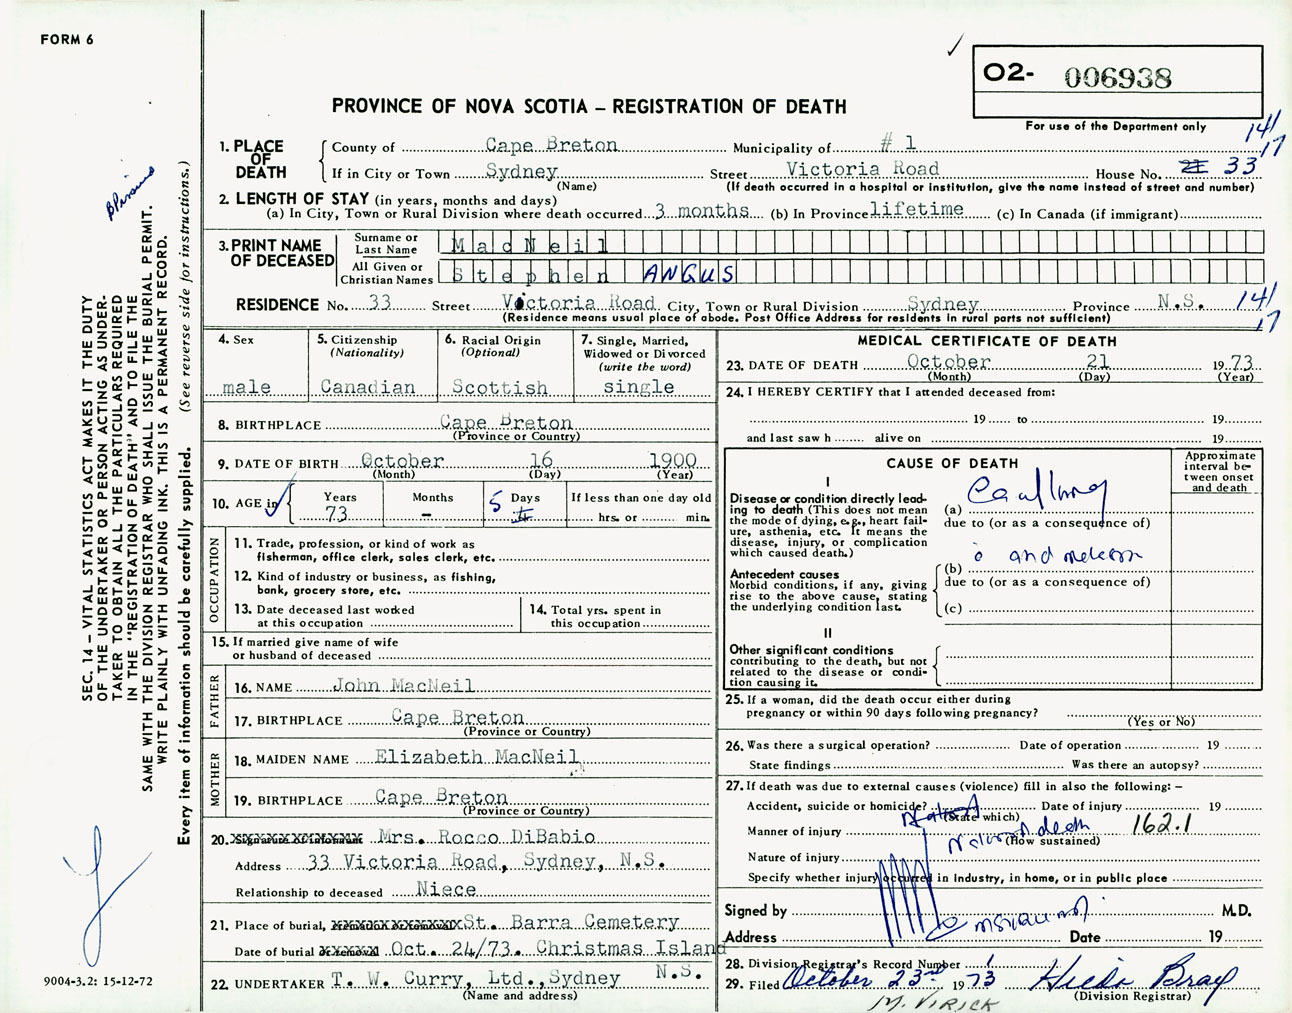 FORM 6
O2- 006938
PROVINCE OF NOVA SCOTIA – REGISTRATION OF DEATH
For use of the Department only
14/
17
1. PLACE OF DEATH
County of Cape Breton Municipality of # 1
If in City or Town Sydney Street Victoria Road House No. 33
(Name) (If death occurred in a hospital or institution, give the name instead of street and number)
2. LENGTH OF STAY (in years, months and days)
(a) In City, Town or Rural Division where death occurred 3 months (b) In Province lifetime (c) In Canada (if immigrant)
3. PRINT NAME OF DECEASED
Surname or Last Name MacNeil
All Given or Christian Names Stephen ANGUS
RESIDENCE No. 33 Street Victoria Road City, Town or Rural Division Sydney Province N.S. 14/
17
(Residence means usual place of abode. Post Office Address for residents in rural parts not sufficient)
4. Sex
male
5. Citizenship
(Nationality)
Canadian
6. Racial Origin
(Optional)
Scottish
7. Single, Married,
Widowed or Divorced
(write the word)
single
8. BIRTHPLACE Cape Breton
(Province or Country)
9. DATE OF BIRTH October 16 1900
(Month) (Day) (Year)
10. AGE in
Years Months Days If less than one day old
73 - 5 hrs. or min.
OCCUPATION
11. Trade, profession, or kind of work as
fisherman, office clerk, sales clerk, etc.
12. Kind of industry or business, as fishing,
bank, grocery store, etc.
13. Date deceased last worked
at this occupation
14. Total yrs. spent in
this occupation
15. If married give name of wife
or husband of deceased
FATHER
16. NAME John MacNeil
17. BIRTHPLACE Cape Breton
(Province or Country)
MOTHER
18. MAIDEN NAME Elizabeth MacNeil
19. BIRTHPLACE Cape Breton
(Province or Country)
20. Signature of informant Mrs. Rocco DiBabio
Address 33 Victoria Road, Sydney, N.S.
Relationship to deceased Niece
21. Place of burial, cremation or removal St. Barra Cemetery
Date of burial or removal Oct. 24/73. Christmas Island
N.S.
22. UNDERTAKER T. W. Curry, Ltd., Sydney
(Name and address)
MEDICAL CERTIFICATE OF DEATH
23. DATE OF DEATH October 21 1973
(Month) (Day) (Year)
24. I HEREBY CERTIFY that I attended deceased from:
19 to 19
and last saw h alive on 19
CAUSE OF DEATH
Approximate
interval be-
tween onset
and death
I
Disease or condition directly lead-
ing to death (This does not mean
the mode of dying, e.g., heart fail-
ure, asthenia, etc. It means the
disease, injury, or complication
which caused death.)
(a) Ca of lung
due to (or as a consequence of)
Antecedent causes
Morbid conditions, if any, giving
rise to the above cause, stating
the underlying condition last.
(b)
due to (or as a consequence of)
(c)
II
Other significant conditions
contributing to the death, but not
related to the disease or condi-
tion causing it.
25. If a woman, did the death occur either during
pregnancy or within 90 days following pregnancy?
(Yes or No)
26. Was there a surgical operation? Date of operation 19
State findings Was there an autopsy?
27. If death was due to external causes (violence) fill in also the following: –
Accident, suicide or homicide? Date of injury 19
(State which)
Manner of injury Natural death 162.1
(How sustained)
Nature of injury
Specify whether injury occurred in industry, in home, or in public place
Signed by M.D.
Address Date 19
28. Division Registrar's Record Number
29. Filed October 23rd 1973 Hilda Bray
(Division Registrar)
M. VIRICK
SEC. 14 – VITAL STATISTICS ACT MAKES IT THE DUTY
OF THE UNDERTAKER OR PERSON ACTING AS UNDER-
TAKER TO OBTAIN ALL THE PARTICULARS REQUIRED
IN THE "REGISTRATION OF DEATH" AND TO FILE THE
SAME WITH THE DIVISION REGISTRAR WHO SHALL ISSUE THE BURIAL PERMIT.
WRITE PLAINLY WITH UNFADING INK. THIS IS A PERMANENT RECORD.
Every item of information should be carefully supplied. (See reverse side for instructions.)
9004-3.2: 15-12-72